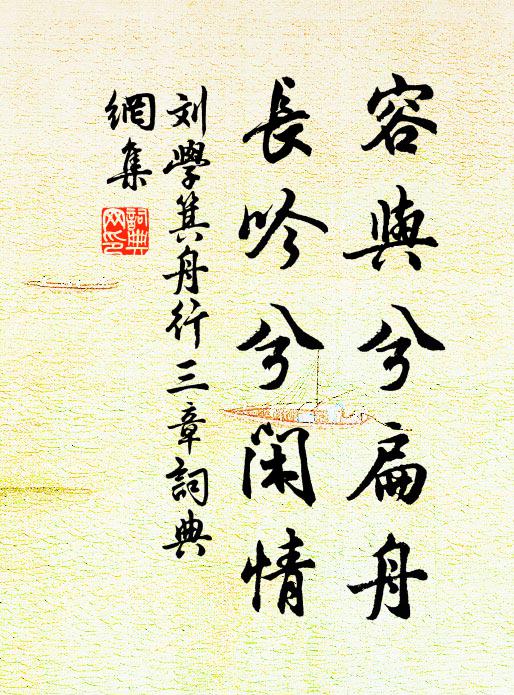 容與兮扁舟
長吟兮閑情
刘學箕舟行三章詞典
網集
詞典
网印